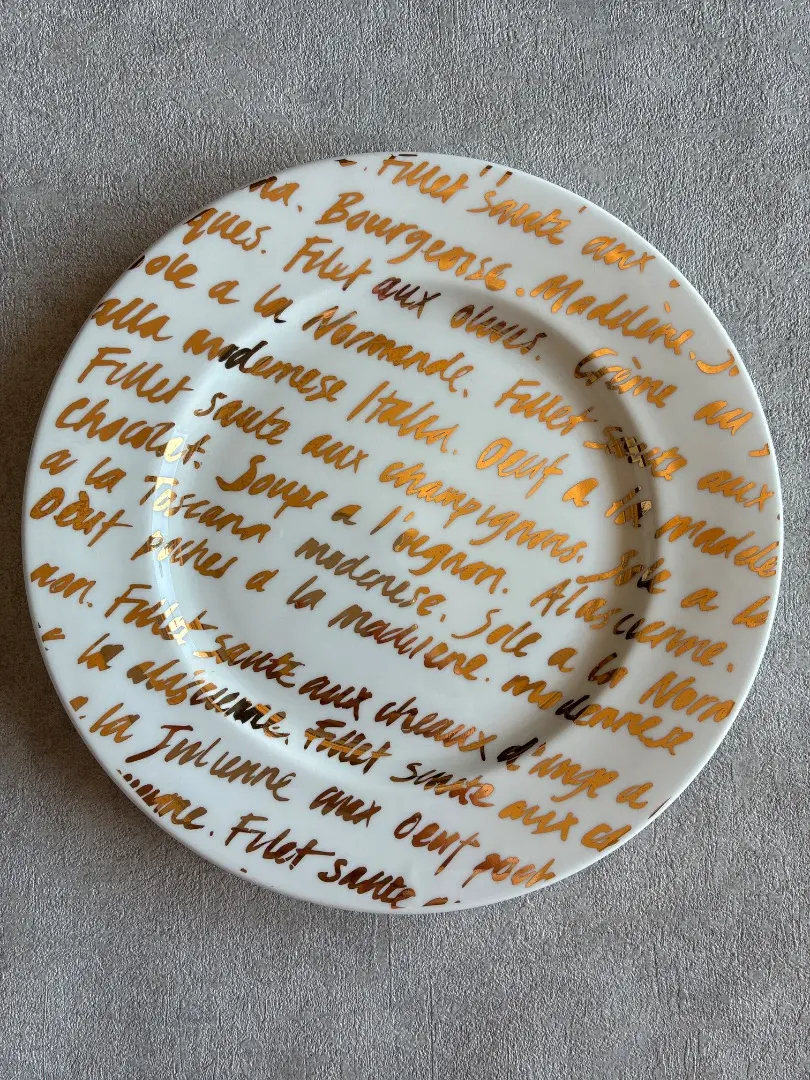 Fillet sauté aux
na. Bourgeoise. Madelène. J
ques. Filet aux olives. Crème au
ole a la Normande. Fillet sauté aux
alla modemese Italia. Oeuf a la madele
Fillet sauté aux champignons. Sole a la
Chocolet. Soupe a l'oignon. Alascienne.
a la Toscana modenese. Sole a la Norm
Oeut poches a la madilene. modennese
non. Fillet sauté aux cheaux d'ange a
la alascienne. Fillet sauté aux ch
a la Julienne aux oeuf poch
ienne. Filet sauté